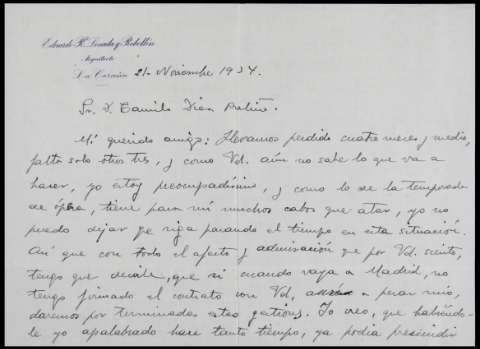 Eduardo R. Losada y Rebellón
Arquitecto
La Coruña 21 Noviembre 1934.
Sr. D. Camilo Díaz Baliño.
Mi querido amigo: Llevamos perdido cuatro meses y medio,
falta solo otros tres, y como Vd. aún no sabe lo que va a
hacer, yo estoy preocupadísimo, y como lo de la temporada
de ópera, tiene para mí muchos cabos que atar, yo no
puedo dejar que siga pasando el tiempo en esta situación.
Así que con todo el afecto y admiración que por Vd. siento,
tengo que decirle, que si cuando vaya a Madrid, no
tengo firmado el contrato con Vd, a pesar mío,
daremos por terminadas estas gestiones. Yo creo, que habiéndo-
le yo apalabrado hace tanto tiempo, ya podía prescindir